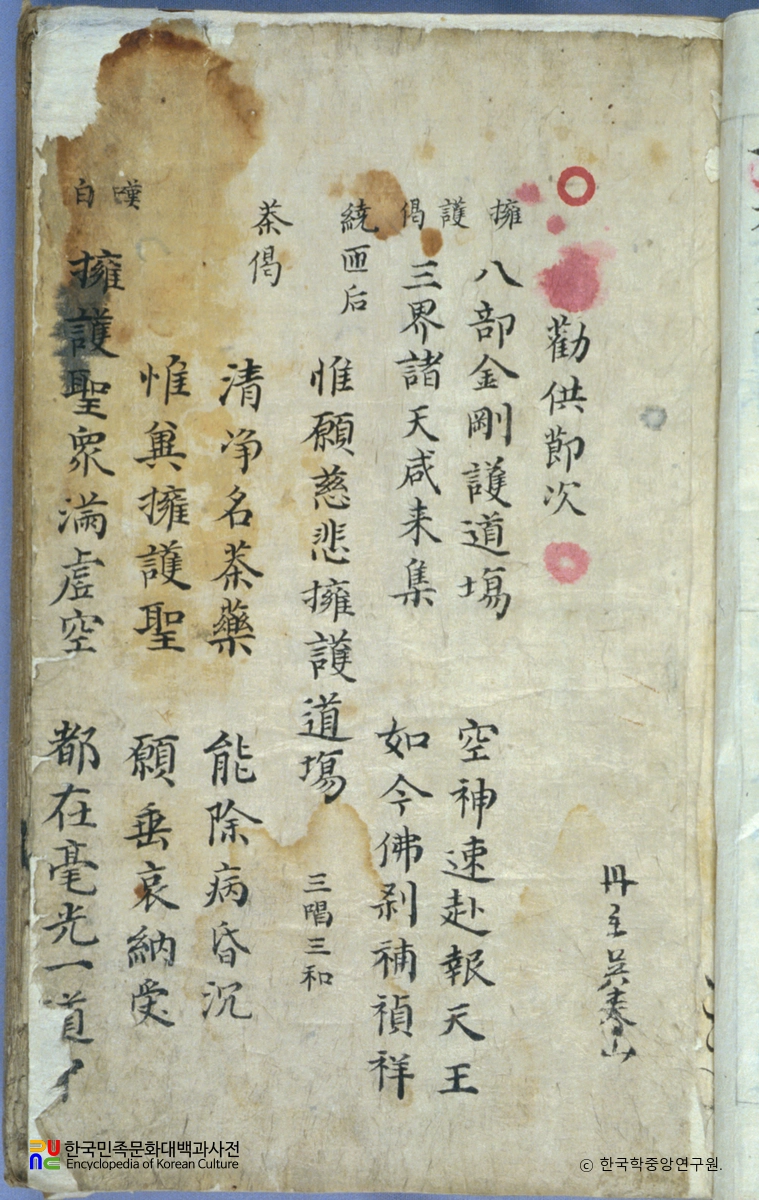 勸供節次
擁護偈
八部金剛護道場 空神速赴報天王
三界諸天咸来集 如今佛刹補禎祥
繞匝后
惟願慈悲擁護道場 三唱三和
茶偈
清净名茶藥 能除病昏沉
惟兾擁護聖 願垂哀納受
嘆白
擁護聖衆滿虛空 都在毫光一道
冊主吳春山
한국민족문화대백과사전
Encyclopedia of Korean Culture
© 한국학중앙연구원.